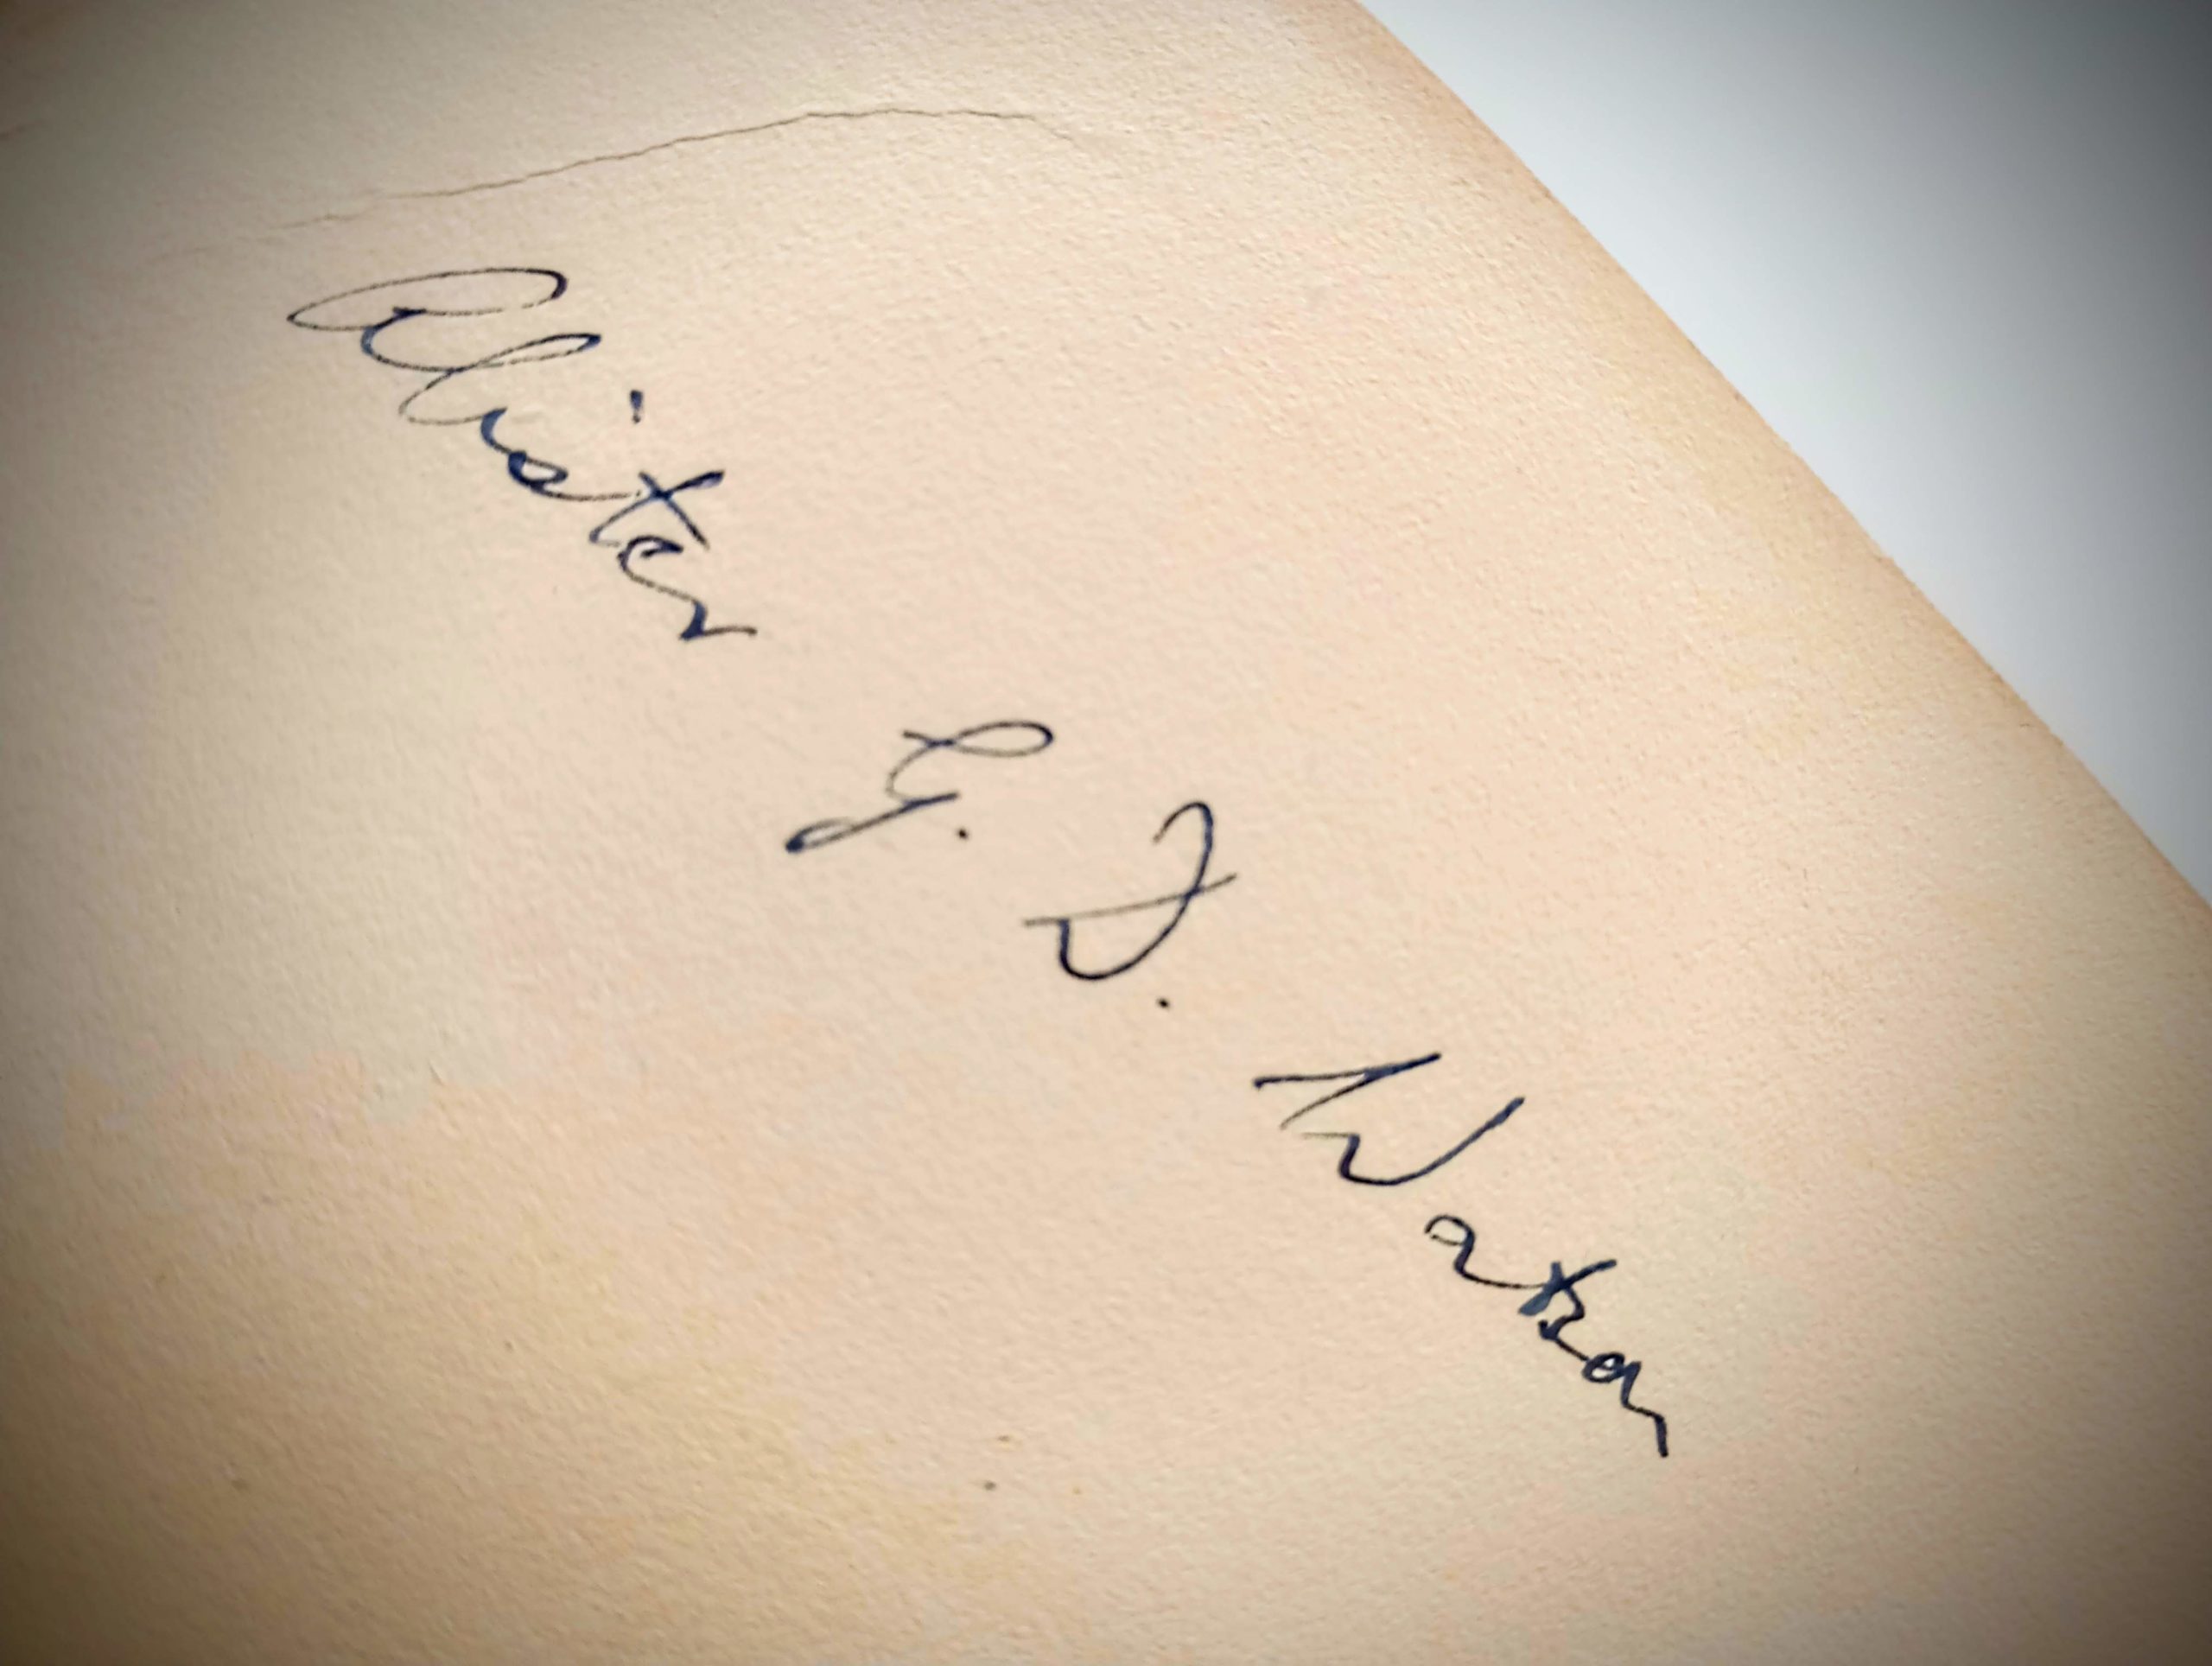 Alister G. D. Watson